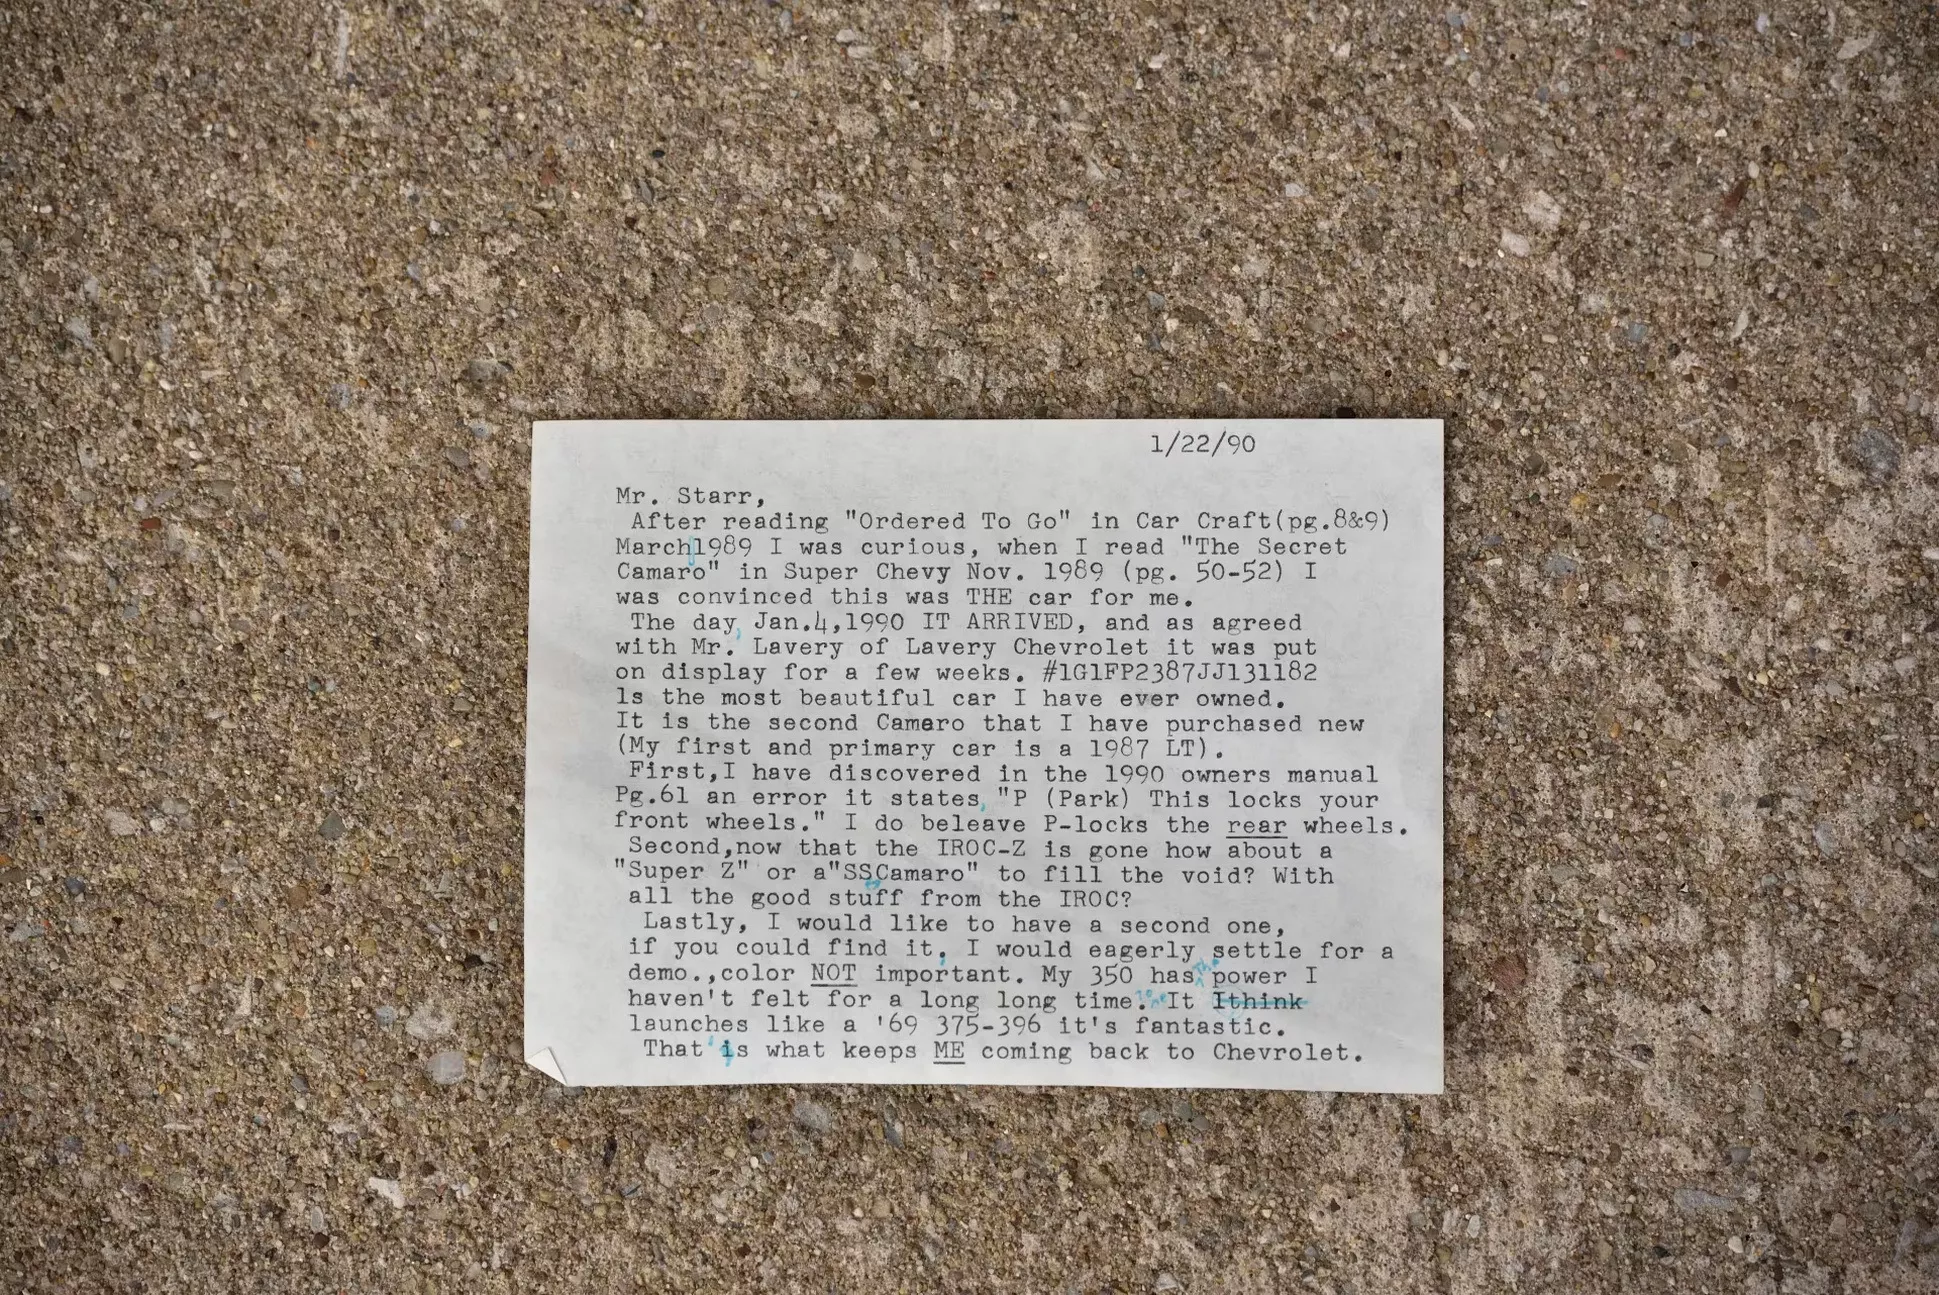 1/22/90
Mr. Starr,
After reading "Ordered To Go" in Car Craft(pg.8&9)
March1989 I was curious, when I read "The Secret
Camaro" in Super Chevy Nov. 1989 (pg. 50-52) I
was convinced this was THE car for me.
The day, Jan.4,1990 IT ARRIVED, and as agreed
with Mr. Lavery of Lavery Chevrolet it was put
on display for a few weeks. #1G1FP2387JJ131182
ls the most beautiful car I have ever owned.
It is the second Camaro that I have purchased new
(My first and primary car is a 1987 LT).
First,I have discovered in the 1990 owners manual
Pg.61 an error it states, "P (Park) This locks your
front wheels." I do beleave P-locks the rear wheels.
Second,now that the IROC-Z is gone how about a
"Super Z" or a"SSCamaro" to fill the void? With
all the good stuff from the IROC?
Lastly, I would like to have a second one,
if you could find it, I would eagerly settle for a
demo.,color NOT important. My 350 has the power I
haven't felt for a long long time. It Ithink
launches like a '69 375-396 it's fantastic.
That is what keeps ME coming back to Chevrolet.